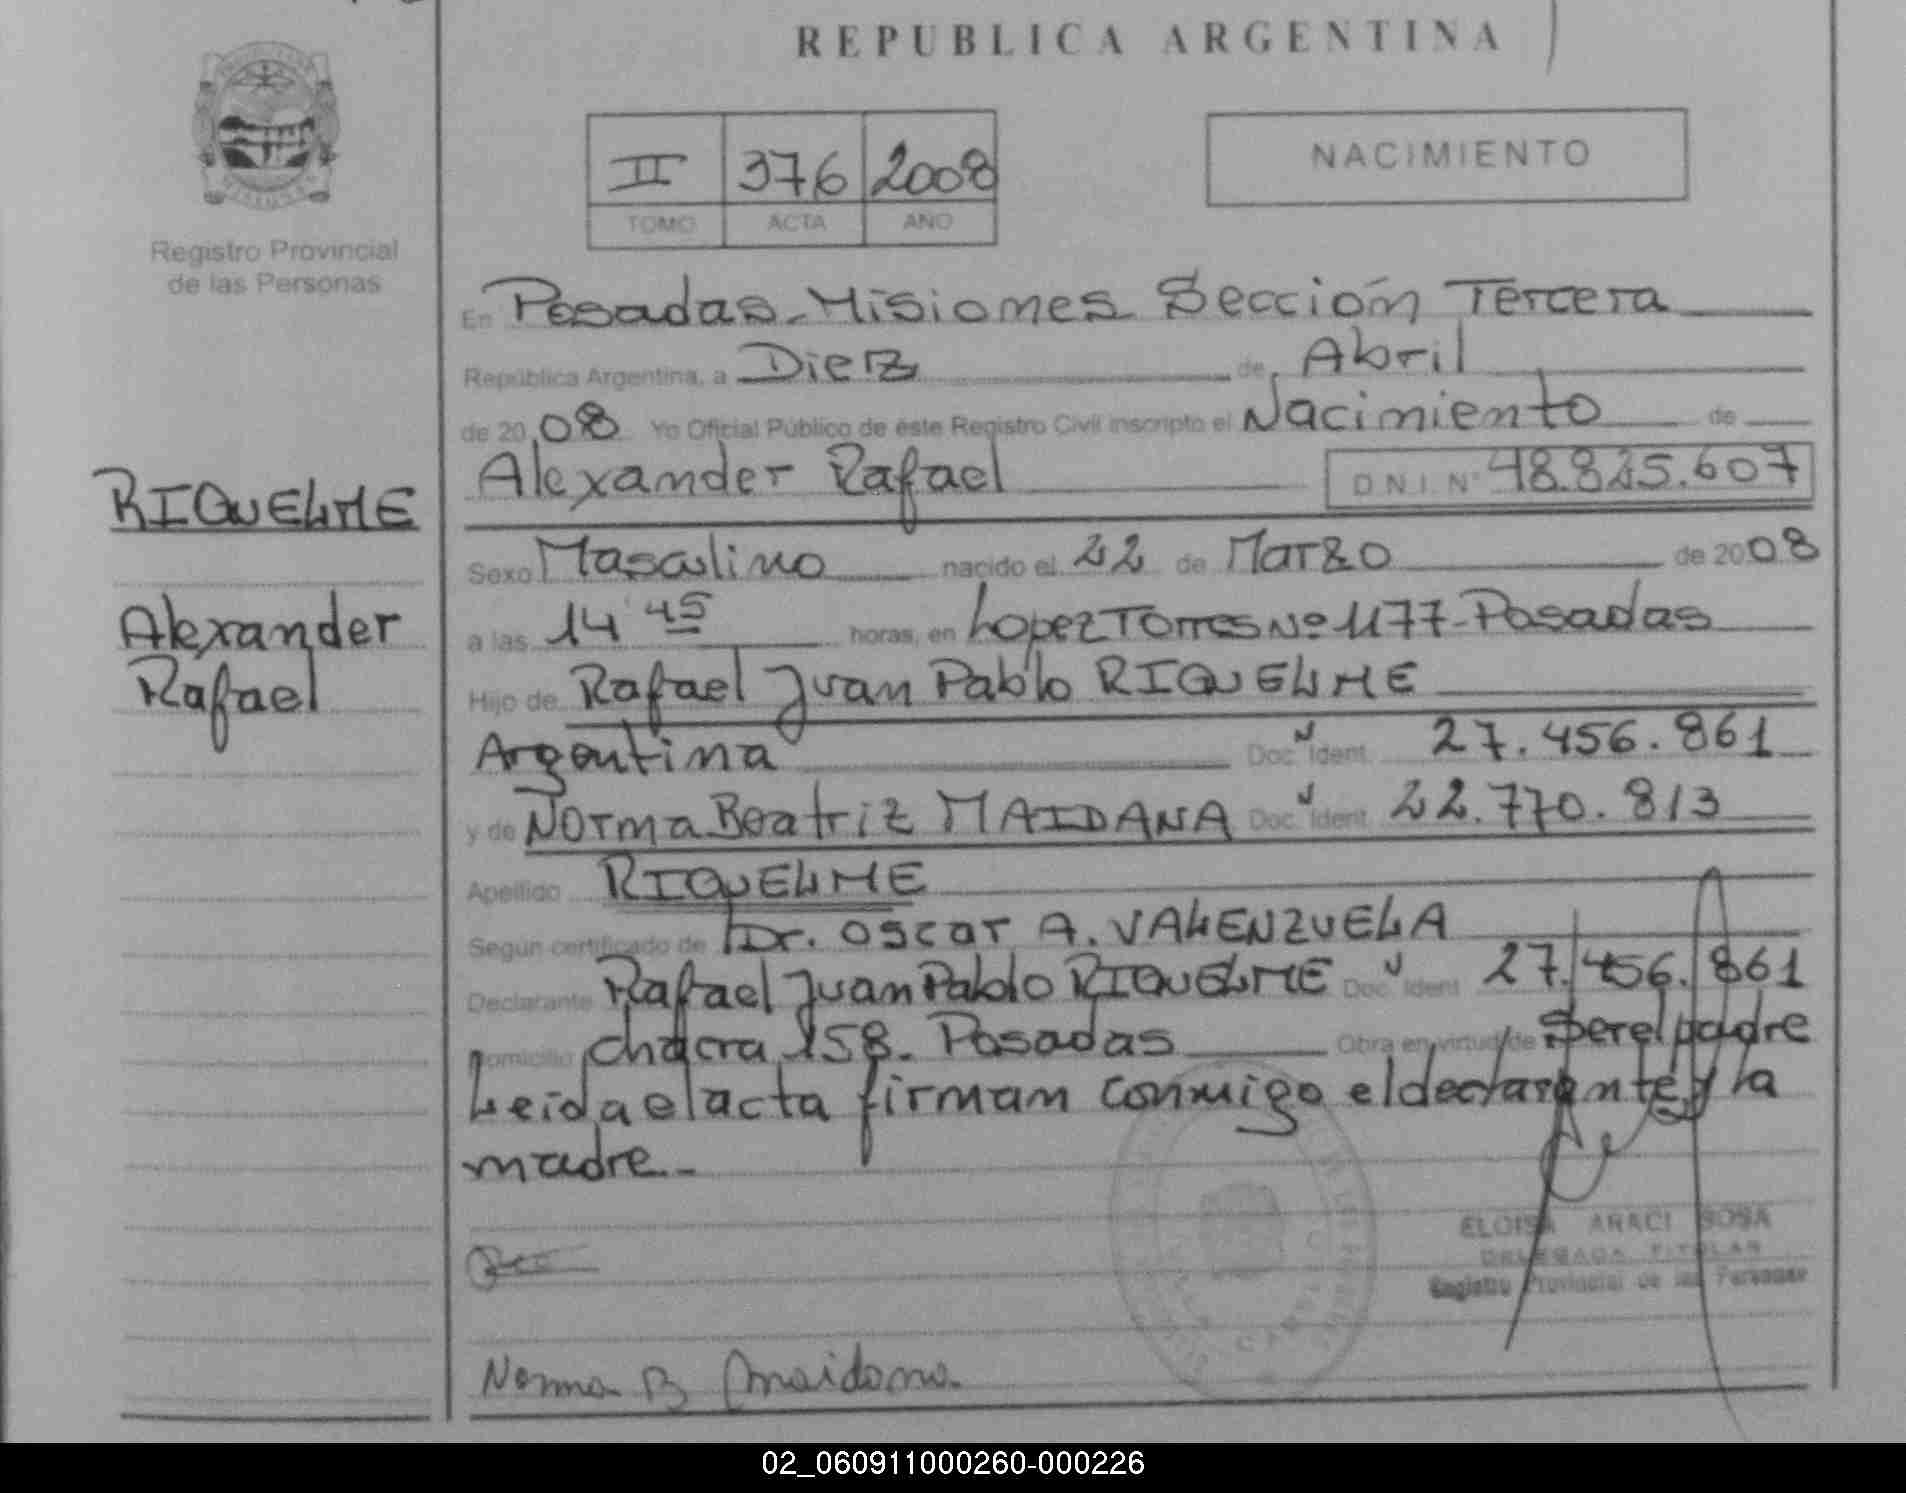 REPUBLICA ARGENTINA
II 376 2008
TOMO ACTA AÑO
NACIMIENTO
Registro Provincial
de las Personas
En Posadas-Misiones Sección Tercera
República Argentina, a Diez de Abril
de 2008 Yo Oficial Público de este Registro Civil inscripto el Nacimiento de
Alexander Rafael D.N.I. Nº 48.825.607
RIQUELME
Sexo Masculino nacido el 22 de Marzo de 2008
Alexander
Rafael
a las 14 45 horas, en Lopez Torres Nº 1177-Posadas
Hijo de Rafael Juan Pablo RIQUELME
Argentina Doc. Ident. 27.456.861
y de Norma Beatriz MAIDANA Doc. Ident. 22.770.813
Apellido RIQUELME
Según certificado de Dr. Oscar A. VALENZUELA
Declarante Rafael Juan Pablo RIQUELME Doc. Ident. 27.456.861
Domicilio chacra 158. Posadas Obra en virtud de Ser el padre
Leida el acta firman conmigo el declarante y la
madre.-
ELOISA ARACI SOSA
DELEGADA TITULAR
Registro Provincial de las Personas
Norma B Maidana
02_060911000260-000226